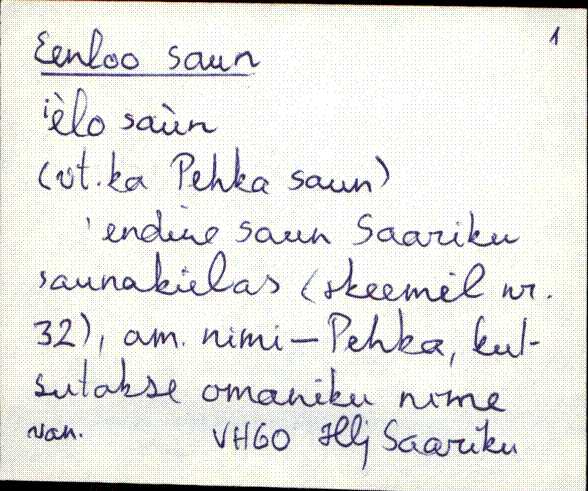 1
Eenloo saun
ìèlo saùn
(vt. ka Pehka saun)
'endine saun Saariku
saunakülas (skeemil nr.
32), am. nimi – Pehka, kut-
sutakse omaniku nime
van. VHGO Hlj Saariku